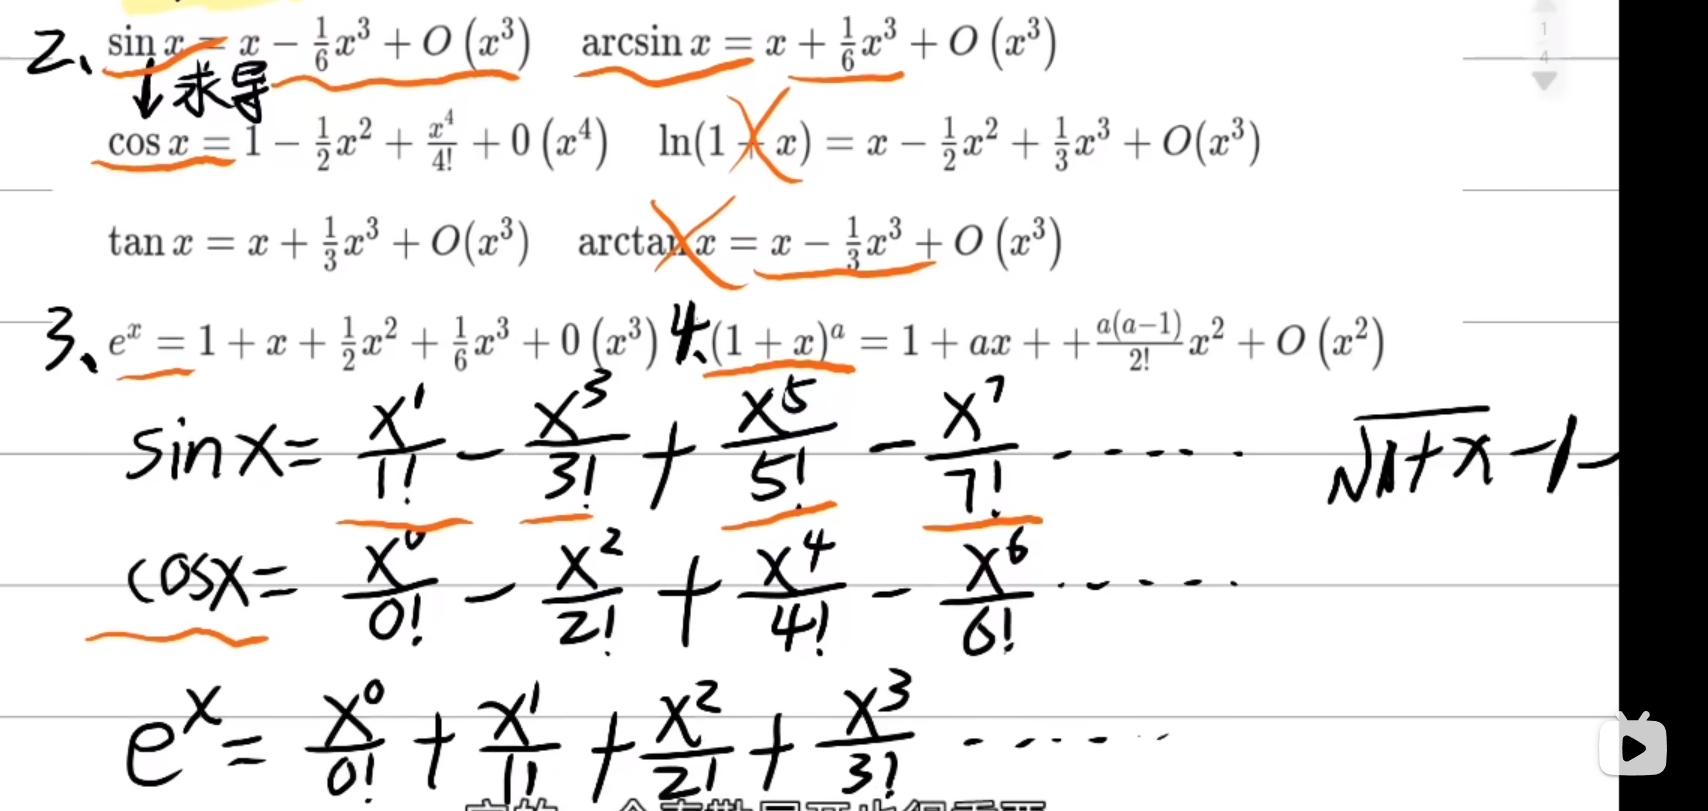 2、 sin x = x − 1/6 x³ + O(x³) arcsin x = x + 1/6 x³ + O(x³)
↓求导
cos x = 1 − 1/2 x² + x⁴/4! + 0(x⁴) ln(1 + x) = x − 1/2 x² + 1/3 x³ + O(x³)
tan x = x + 1/3 x³ + O(x³) arctan x = x − 1/3 x³ + O(x³)
3、 eˣ = 1 + x + 1/2 x² + 1/6 x³ + 0(x³) 4、 (1 + x)ᵃ = 1 + ax + + a(a−1)/2! x² + O(x²)
sinx = x¹/1! − x³/3! + x⁵/5! − x⁷/7! ······ √1+x −1−
cosx = x⁰/0! − x²/2! + x⁴/4! − x⁶/6! ······
eˣ = x⁰/0! + x¹/1! + x²/2! + x³/3! ······
1
4